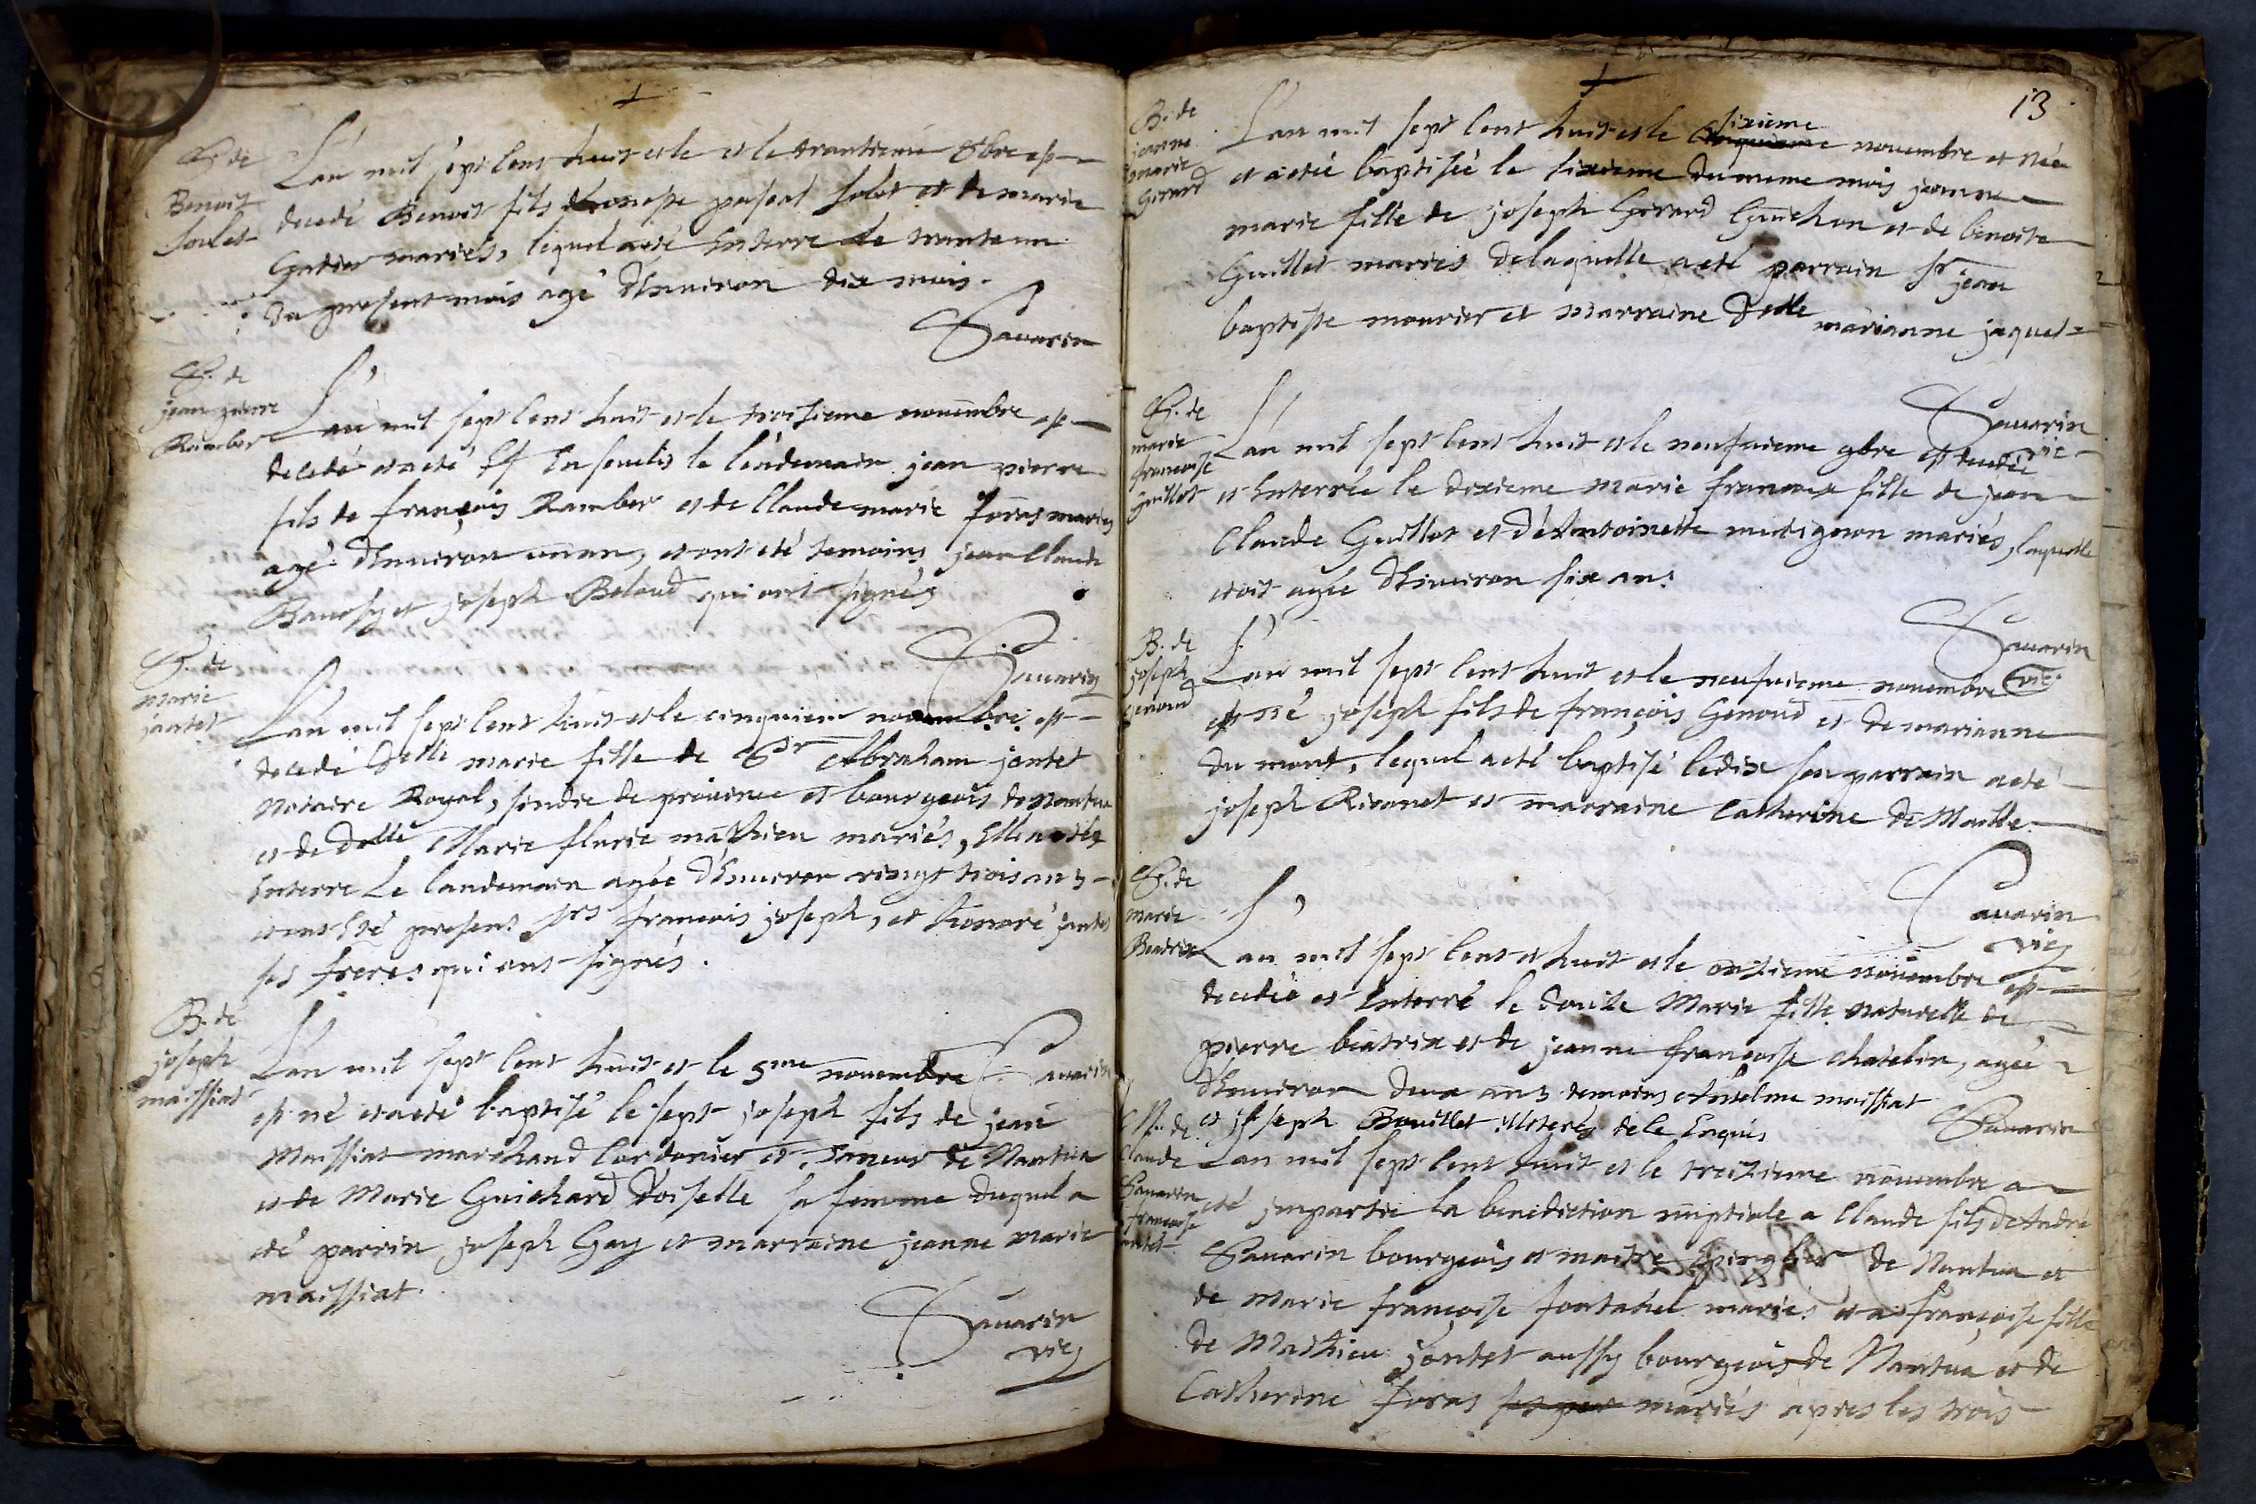 S. de
Benoit
Soulet
L'an mil sept cent huit et le et le trantieme 8bre est
decedé Benoit fils d'honeste pascal Solet et de marie
Gatier mariés, lequel a eté Enterre le trente un
du present mois agé d'Enuiron dix mois.
Sauarin
S. de
jean pierre
Rambor
L'an mil sept cent huit et le troisieme nouembre est
decedé et a eté Enseuelis le lendemain jean pierre
fils de françois Rambor et de Claude marie foras mariés
agé d'Enuiron un an, et ont eté temoins jean Claude
et joseph Beloud qui ont signés
Sauarin
S. de
marie
jantet
L'an mil sept cent huit et le cinquiem nouembre est
decedé Delle marie fille de Sr Abraham jantet
Notaire Royal, sindic de prouince et bourgeois de Nantua
et de Delle Marie flurie mathieu mariés, Elle a eté
Enterre Le landemain agée d'Enuiron vingt trois ans
et ont Eté present srs francois joseph, et honoré jantet
ses freres qui ont signés.
B. de
joseph
maissiat
L'an mil sept cent huit et le 5me nouembre
Sauarin
est né et a eté baptisé le sept joseph fils de jean
Maissiat marchand Cordonier et Taneur de Nantua
et de Marie Guichard d'oiselle sa femme duquel a
eté parrin joseph Gay et marraine jeanne marie
maissiat.
Sauarin
vic
13
B. de
jeanne
marie
Girard
L'an mil sept cent huit et le cinquieme sixieme nouembre et Née
et a eté baptisée le sixieme du meme mois jeanne
marie fille de joseph Girard Guichon et de benoite
Guillot mariés de laquelle a eté parrain sr jean
baptiste mourier et marraine Delle marianne jaquet
Sauarin
vic
S. de
marie
francoise
guillot
L'an mil sept cent huit et le neufuieme 9bre est decedée
et Enterrée le dixieme marie francoise fille de jean
Claude Guillot et d'Antoinette mariés, laquelle
etoit agée d'Enuiron six ans
Sauarin
vic
B. de
joseph
Genoud
L'an mil sept cent huit et le neufuieme nouembre
est né joseph fils de françois Genoud et de marianne
du mont, lequel a eté baptisé le dix son parrain a eté
joseph Riuonet et marraine Catherine de Maille
Sauarin
vic
S. de
marie
Beatrix
L'an mil sept cent et huit et le onzieme nouembre est
decedée et Enterré le douze Marie fille naturelle de
pierre beatrix et de jeanne francoise chatelin, agée
d'Enuiron deux ans temoins Anselme maissiat
et joseph Bouillet illiterés de ce Enquis
Sauarin
M. de
Claude
Sauarin
francoise
jantet
L'an mil sept cent huit et le treizieme nouembre a
eté jmpartie la benediction nuptiale a Claude fils de André
Sauarin bourgeois et maitre Epinglier de Nantua et
de Marie françoise fontanel mariés et a françoise fille
de Mathieu jantet aussy bourgeois de Nantua et de
Catherine foras mariés apres les trois